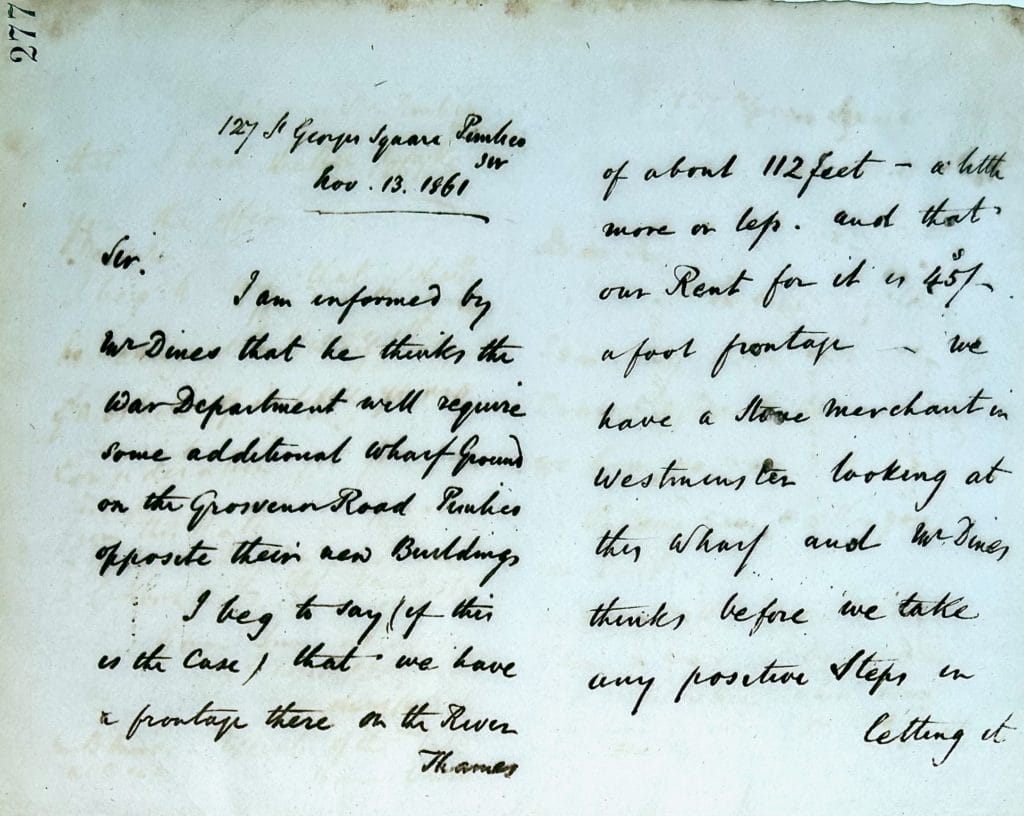 277
127 St Georges Square Pimlico
SW
Nov. 13. 1861
Sir.
I am informed by
Mr Dines that he thinks the
War Department will require
some additional Wharf Ground
on the Grosvenor Road Pimlico
opposite their new Buildings
I beg to say (if this
is the Case) that we have
a frontage there on the River
Thames
of about 112 feet - a little
more or less. and that
our Rent for it is 45s/-
a foot frontage - we
have a Stone Merchant in
Westminster looking at
this Wharf and Mr Dines
thinks before we take
any positive Steps in
letting it